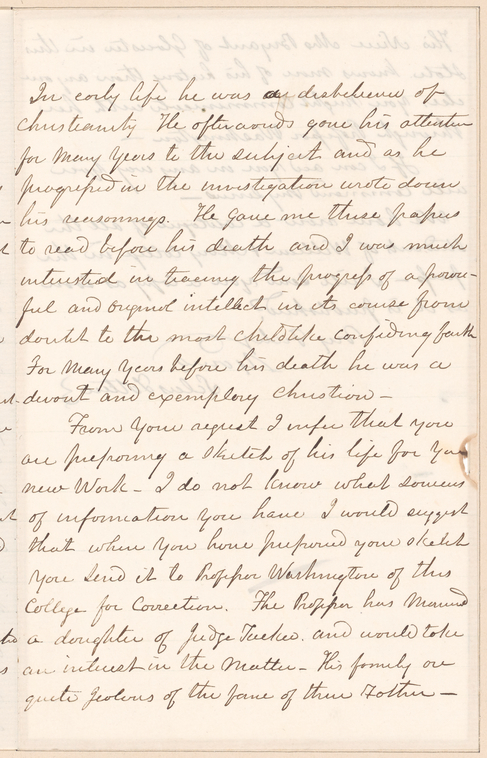 In early life he was a disbeliever of
Christianity He afterwards gave his attention
for many years to the subject and as he
progressed in the investigation wrote down
his reasonings. He gave me these papers
to read before his death and I was much
interested in tracing the progress of a power-
ful and original intellect in its course from
doubt to the most childlike confiding faith
For many years before his death he was a
devout and exemplary Christian —
From your request I infer that you
are preparing a sketch of his life for your
new Work — I do not know what sources
of information you have I would suggest
that when you have prepared your sketch
you send it to Professor Washington of this
College for Correction. The Professor has Married
a daughter of Judge Tucker. and would take
an interest in the Matter — His family are
quite Jealous of the fame of their Father —